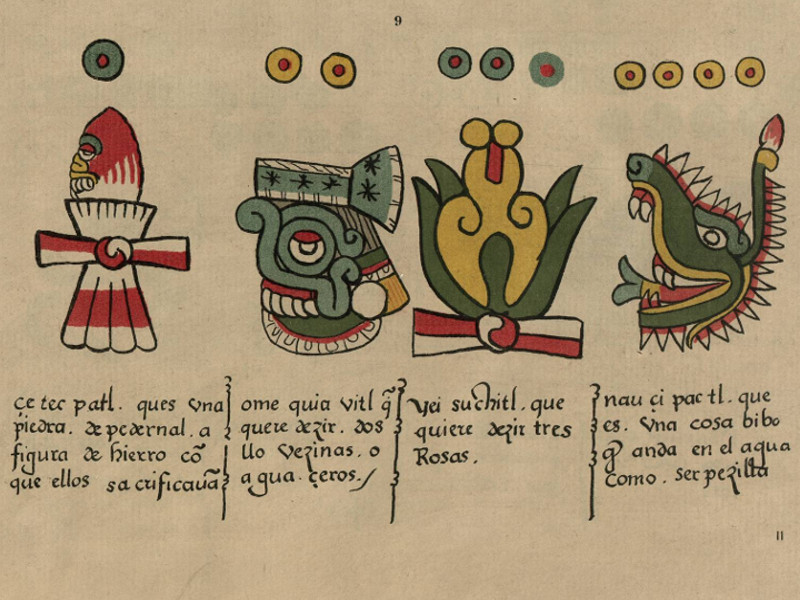 9
çe tec patl. ques vna
piedra. de pedernal. a
figura de hierro cõ
que ellos sacrificauã
ome quia vitl q̃
quere dezir. dos
llo vezinas. o
agua. çeros./
yei suchitl. que
quiere dezir tres
Rosas.
nau çi pactl. que
es. vna cosa biba
q̃ anda en el agua
como. serpezilla
II